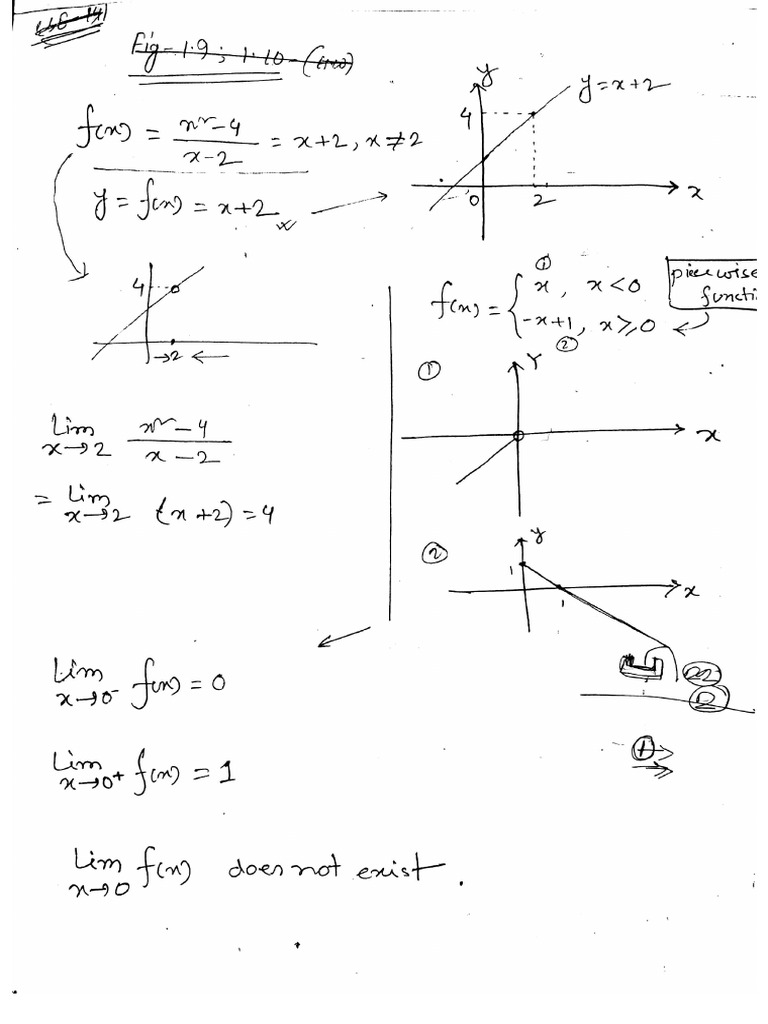 Fig-1.9; 1.10-
f(x) = x²-4 / x-2 = x+2, x≠2
y = f(x) = x+2
y
y=x+2
4
0
2
x
4
→2 ←
Lim x→2 x²-4 / x-2
= Lim x→2 (x+2) = 4
①
f(x) = { x, x<0
-x+1, x≥0
②
piecewise
①
Y
x
②
y
1
1
x
Lim x→0⁻ f(x) = 0
Lim x→0⁺ f(x) = 1
Lim x→0 f(x) does not exist.